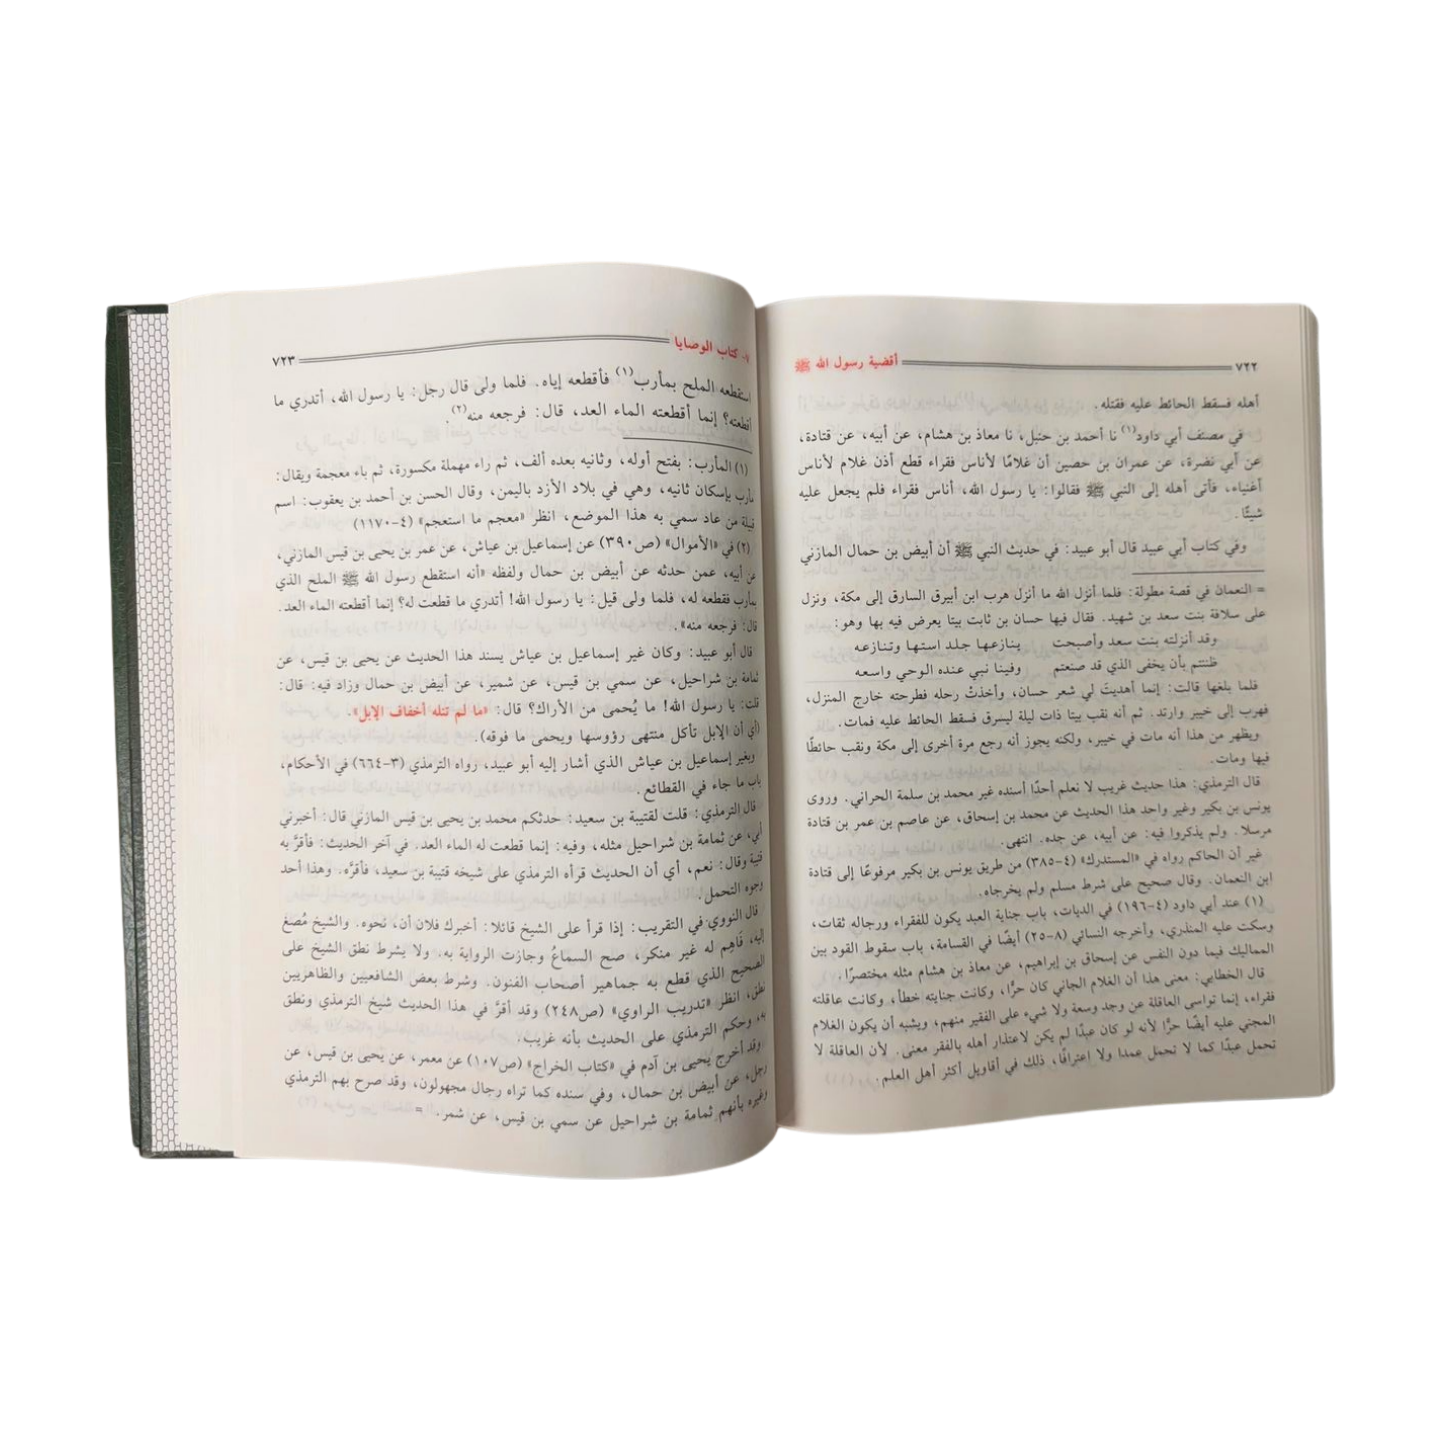 ٧٢٢ أقضية رسول الله ﷺ
أهله فسقط الحائط عليه فقتله.
في مصنف أبي داود(١) نا أحمد بن حنبل، نا معاذ بن هشام، عن أبيه، عن قتادة،
عن أبي نضرة، عن عمران بن حصين أن غلامًا لأناس فقراء قطع أذن غلام لأناس
أغنياء، فأتى أهله إلى النبي ﷺ فقالوا: يا رسول الله، أناس فقراء فلم يجعل عليه
شيئًا.
وفي كتاب أبي عبيد قال أبو عبيد: في حديث النبي ﷺ أن أبيض بن حمال المازني
= النعمان في قصة مطولة: فلما أنزل الله ما أنزل هرب ابن أبيرق السارق إلى مكة، ونزل
على سلافة بنت سعد بن شهيد. فقال فيها حسان بن ثابت بيتا يعرض فيه بها وهو:
وقد أنزلته بنت سعد وأصبحت ينازعها جلد استها وتنازعه
ظننتم بأن يخفى الذي قد صنعتم وفينا نبي عنده الوحي واسعه
فلما بلغها قالت: إنما أهديتَ لي شعر حسان، وأخذتْ رحله فطرحته خارج المنزل،
فهرب إلى خيبر وارتد. ثم أنه نقب بيتا ذات ليلة ليسرق فسقط الحائط عليه فمات.
ويظهر من هذا أنه مات في خيبر، ولكنه يجوز أنه رجع مرة أخرى إلى مكة ونقب حائطًا
فيها ومات.
قال الترمذي: هذا حديث غريب لا نعلم أحدًا أسنده غير محمد بن سلمة الحراني. وروى
يونس بن بكير وغير واحد هذا الحديث عن محمد بن إسحاق، عن عاصم بن عمر بن قتادة
مرسلا. ولم يذكروا فيه: عن أبيه، عن جده. انتهى.
غير أن الحاكم رواه في «المستدرك» (٤-٣٨٥) من طريق يونس بن بكير مرفوعًا إلى قتادة
ابن النعمان. وقال صحيح على شرط مسلم ولم يخرجاه.
(١) عند أبي داود (٤-١٩٦) في الديات، باب جناية العبد يكون للفقراء ورجاله ثقات،
وسكت عليه المنذري، وأخرجه النسائي (٨-٢٥) أيضًا في القسامة، باب سقوط القود بين
المماليك فيما دون النفس عن إسحاق بن إبراهيم، عن معاذ بن هشام مثله مختصرًا.
قال الخطابي: معنى هذا أن الغلام الجاني كان حرًّا، وكانت جنايته خطأ، وكانت عاقلته
فقراء، إنما تواسى العاقلة عن وجد وسعة ولا شيء على الفقير منهم، ويشبه أن يكون الغلام
المجني عليه أيضًا حرًّا لأنه لو كان عبدًا لم يكن لاعتذار أهله بالفقر معنى. لأن العاقلة لا
تحمل عبدًا كما لا تحمل عمدا ولا اعترافًا، ذلك في أقاويل أكثر أهل العلم.
٧- كتاب الوصايا ٧٢٣
استقطعه الملح بمأرب(١) فأقطعه إياه. فلما ولى قال رجل: يا رسول الله، أتدري ما
أقطعته؟ إنما أقطعته الماء العد، قال: فرجعه منه(٢).
(١) المأرب: بفتح أوله، وثانيه بعده ألف، ثم راء مهملة مكسورة، ثم باء معجمة ويقال:
مأرب بإسكان ثانيه، وهي في بلاد الأزد باليمن، وقال الحسن بن أحمد بن يعقوب: اسم
قبيلة من عاد سمي به هذا الموضع، انظر «معجم ما استعجم» (٤-١١٧٠)
(٢) في «الأموال» (ص٣٩٠) عن إسماعيل بن عياش، عن عمر بن يحيى بن قيس المازني،
عن أبيه، عمن حدثه عن أبيض بن حمال ولفظه «أنه استقطع رسول الله ﷺ الملح الذي
بمأرب فقطعه له، فلما ولى قيل: يا رسول الله! أتدري ما قطعت له؟ إنما أقطعته الماء العد.
قال: فرجعه منه».
قال أبو عبيد: وكان غير إسماعيل بن عياش يسند هذا الحديث عن يحيى بن قيس، عن
ثمامة بن شراحيل، عن سمي بن قيس، عن شمير، عن أبيض بن حمال وزاد فيه: قال:
قلت: يا رسول الله! ما يُحمى من الأراك؟ قال: «ما لم تنله أخفاف الإبل».
(أي أن الإبل تأكل منتهى رؤوسها ويحمى ما فوقه).
وبغير إسماعيل بن عياش الذي أشار إليه أبو عبيد، رواه الترمذي (٣-٦٦٤) في الأحكام،
باب ما جاء في القطائع.
قال الترمذي: قلت لقتيبة بن سعيد: حدثكم محمد بن يحيى بن قيس المازني قال: أخبرني
أبي، عن ثمامة بن شراحيل مثله، وفيه: إنما قطعت له الماء العد. في آخر الحديث: فأقرَّ به
قتيبة وقال: نعم، أي أن الحديث قرأه الترمذي على شيخه قتيبة بن سعيد، فأقرَّه. وهذا أحد
وجوه التحمل.
قال النووي في التقريب: إذا قرأ على الشيخ قائلا: أخبرك فلان أن، نحوه. والشيخ مُصغ
إليه، فَاهِم له غير منكر، صح السماعُ وجازت الرواية به. ولا يشرط نطق الشيخ على
الصحيح الذي قطع به جماهير أصحاب الفنون. وشرط بعض الشافعيين والظاهريين
نطق، انظر «تدريب الراوي» (ص٢٤٨) وقد أقرَّ في هذا الحديث شيخ الترمذي ونطق
به، وحكم الترمذي على الحديث بأنه غريب.
وقد أخرج يحيى بن آدم في «كتاب الخراج» (ص١٠٧) عن معمر، عن يحيى بن قيس، عن
رجل، عن أبيض بن حمال، وفي سنده كما تراه رجال مجهولون، وقد صرح بهم الترمذي
وغيره بأنهم ثمامة بن شراحيل عن سمي بن قيس، عن شمر. =